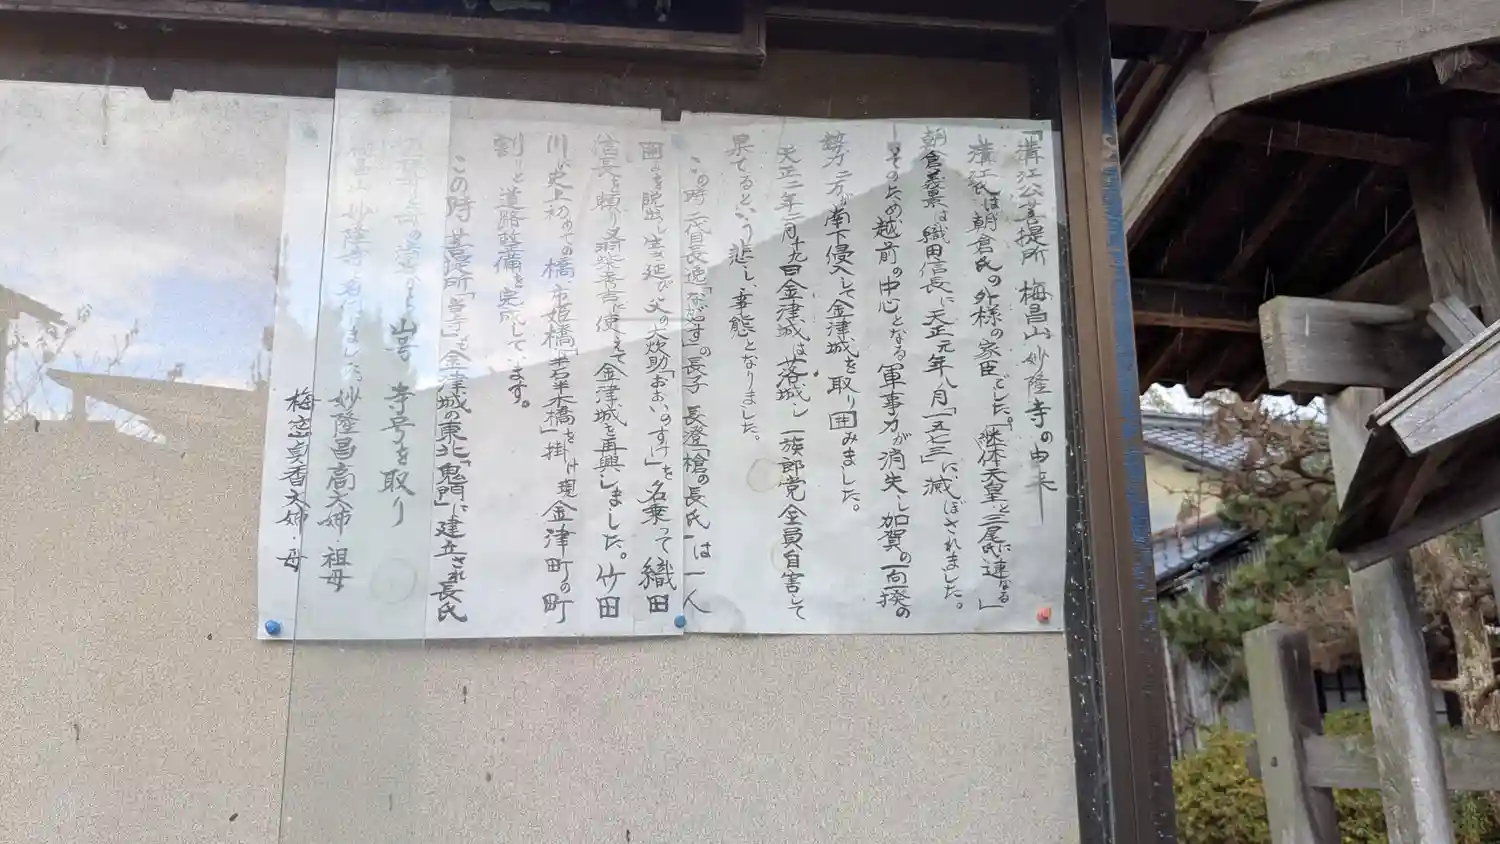 「溝江公菩提所 梅昌山 妙隆寺の由来」
溝江氏は朝倉氏の外様の家臣でした。継体天皇と三尾氏に連なる
朝倉義景は織田信長に天正元年八月「一五七三」に滅ぼされました。
そのため越前の中心となる軍事力が消失し加賀の一向一揆の
勢力二万が南下侵入して金津城を取り囲みました。
天正二年二月十九日金津城は落城し一族郎党全員自害して
果てるという悲しい事態となりました。
この時二代目長逸「ながやす」の長子 長澄「槍の長氏」は一人
田を脱出し生き延び父の大炊助「おおいのすけ」を名乗って織田
信長を頼り羽柴秀吉に使えて金津城を再興しました。竹田
川に史上初めての橋、市姫橋「半石半木橋」を掛け現金津町の町
割りと道路整備を完了しています。
この時菩提所「当寺」も金津城の東北「鬼門」に建立され長氏
山号 寺号を取り
梅昌山 妙隆寺と名付けました。 妙隆昌高大姉・祖母
梅窓貞香大姉・母